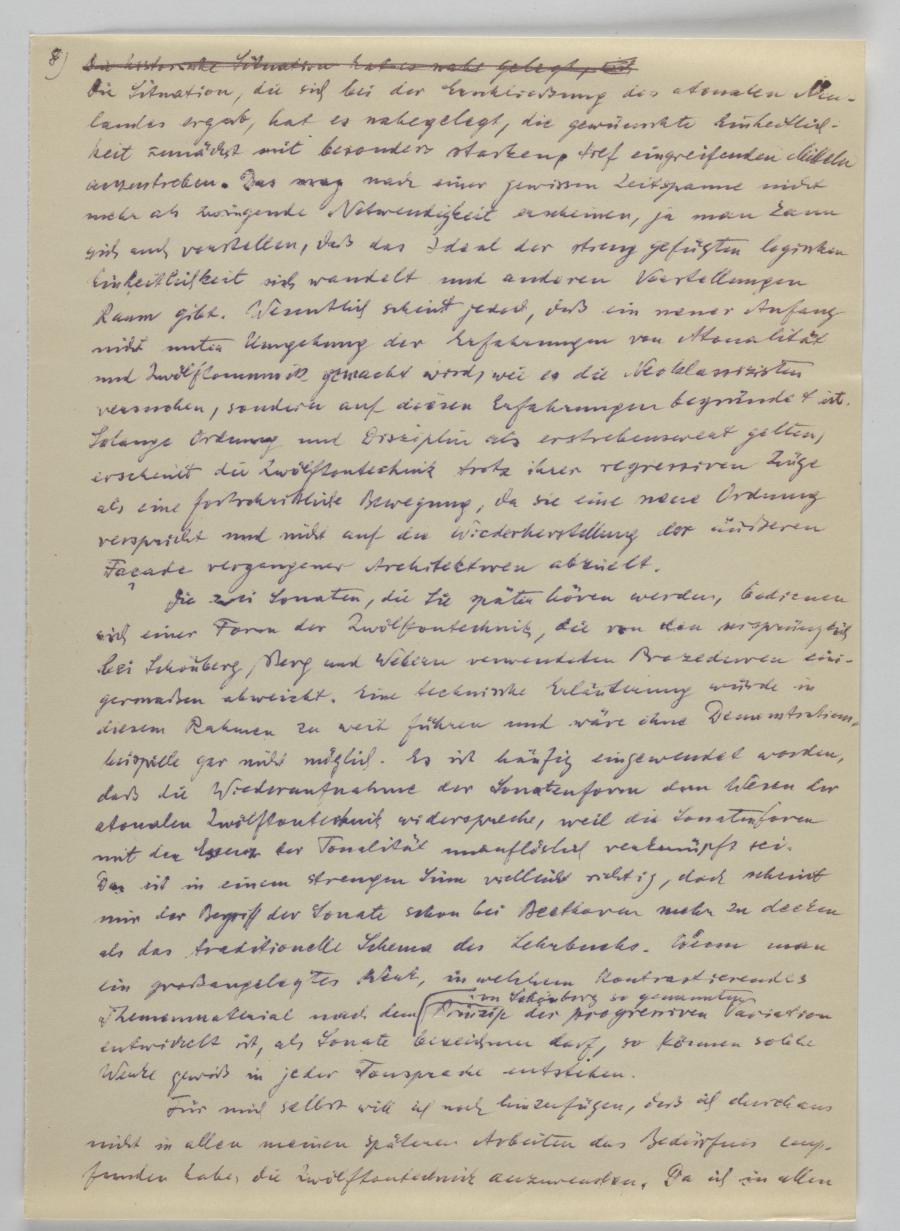 8)
Die historische Situation hat es nahe gelegt, mit
Die Situation, die sich bei der Erschliessung des atonalen Neu-
landes ergab, hat es nahegelegt, die gewünschte Einheitlich-
keit zunächst mit besonders starken, tief eingreifenden Mitteln
anzustreben. Das mag nach einer gewissen Zeitspanne nicht
mehr als zwingende Notwendigkeit erscheinen, ja man kann
sich auch vorstellen, daß das Ideal der streng gefügten logischen
Einheitlichkeit sich wandelt und anderen Vorstellungen
Raum gibt. Wesentlich scheint jedoch, daß ein neuer Anfang
nicht unter Umgehung der Erfahrungen von Atonalität
und Zwölftonmusik gemacht wird, wie es die Neoklassizisten
versuchen, sondern auf diesen Erfahrungen begründet ist.
Solange Ordnung und Disziplin als erstrebenswert gelten,
erscheint die Zwölftontechnik trotz ihrer regressiven Züge
als eine fortschrittliche Bewegung, da sie eine neue Ordnung
verspricht und nicht auf die Wiederherstellung der äußeren
Façade vergangener Architekturen abzielt.
Die zwei Sonaten, die Sie später hören werden, bedienen
sich einer Form der Zwölftontechnik, die von den ursprünglich
bei Schönberg, Berg und Webern verwendeten Prozeduren eini-
germaßen abweicht. Eine technische Erläuterung würde in
diesem Rahmen zu weit führen und wäre ohne Demonstrations-
beispiele gar nicht möglich. Es ist häufig eingewendet worden,
daß die Wiederaufnahme der Sonatenform dem Wesen der
atonalen Zwölftontechnik widerspreche, weil die Sonatenform
mit der Essenz der Tonalität unauflöslich verknüpft sei.
Das ist in einem strengen Sinn vielleicht richtig, doch scheint
mir der Begriff der Sonate schon bei Beethoven mehr zu decken
als das traditionelle Schema des Lehrbuchs. Wenn man
ein großangelegtes Werk, in welchem kontrastierendes
von Schönberg so genannten
Themenmaterial nach dem Prinzip der progressiven Variation
entwickelt ist, als Sonate bezeichnen darf, so können solche
Werke gewiß in jeder Tonsprache entstehen.
Für mich selbst will ich noch hinzufügen, daß ich durchaus
nicht in allen meinen späteren Arbeiten das Bedürfnis emp-
funden habe, die Zwölftontechnik anzuwenden. Da ich in allen